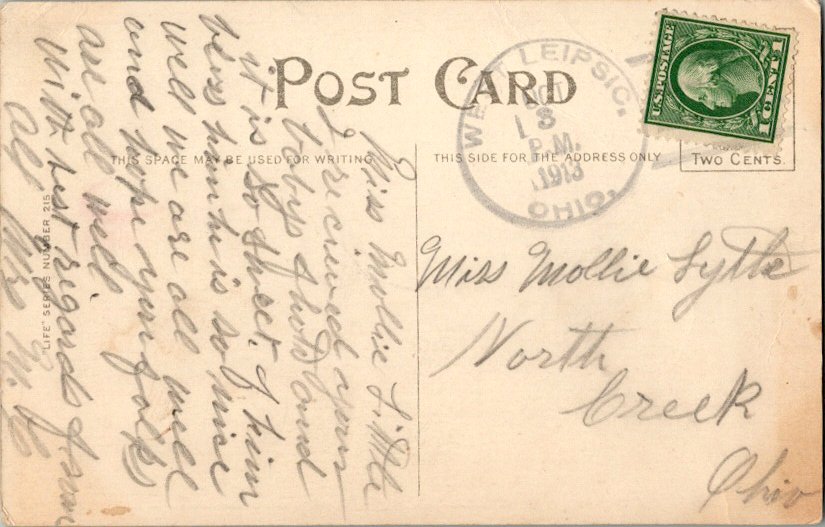 POST CARD
THIS SPACE MAY BE USED FOR WRITING
THIS SIDE FOR THE ADDRESS ONLY
TWO CENTS.
U.S. POSTAGE
1 CENT 1
WEST LEIPSIC,
OCT
13
P.M.
1913
OHIO.
Miss Mollie Lytle
North
Creek
Ohio
Miss Mollie Little
I recieved your
babys photo and
it is so sweet.
bless him he is so nice
well we are all well
and hope you folks
are all well
with best regards from
all Mrs M.
"LIFE" SERIES NUMBER 215